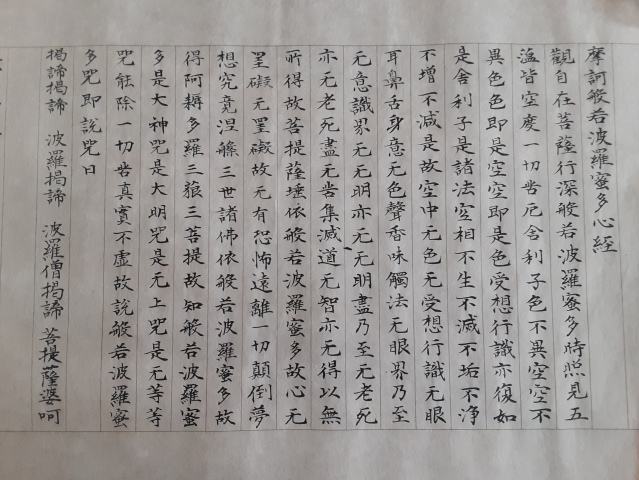 摩訶般若波羅蜜多心経
觀自在菩薩行深般若波羅蜜多時照見五
蕰皆空度一切苦厄舍利子色不異空空不
異色色即是空空即是色受想行識亦復如
是舍利子是諸法空相不生不滅不垢不淨
不增不減是故空中无色无受想行識无眼
耳鼻舌身意无色聲香味觸法无眼界乃至
无意識界无无明亦无无明盡乃至无老死
亦无老死盡无苦集滅道无智亦无得以無
所得故菩提薩埵依般若波羅蜜多故心无
罣礙无罣礙故无有恐怖遠離一切顛倒夢
想究竟涅槃三世諸佛依般若波羅蜜多故
得阿耨多羅三藐三菩提故知般若波羅蜜
多是大神咒是大明咒是无上咒是无等等
咒能除一切苦真實不虛故說般若波羅蜜
多咒即說咒曰
揭諦揭諦 波羅揭諦 波羅僧揭諦 菩提薩婆呵